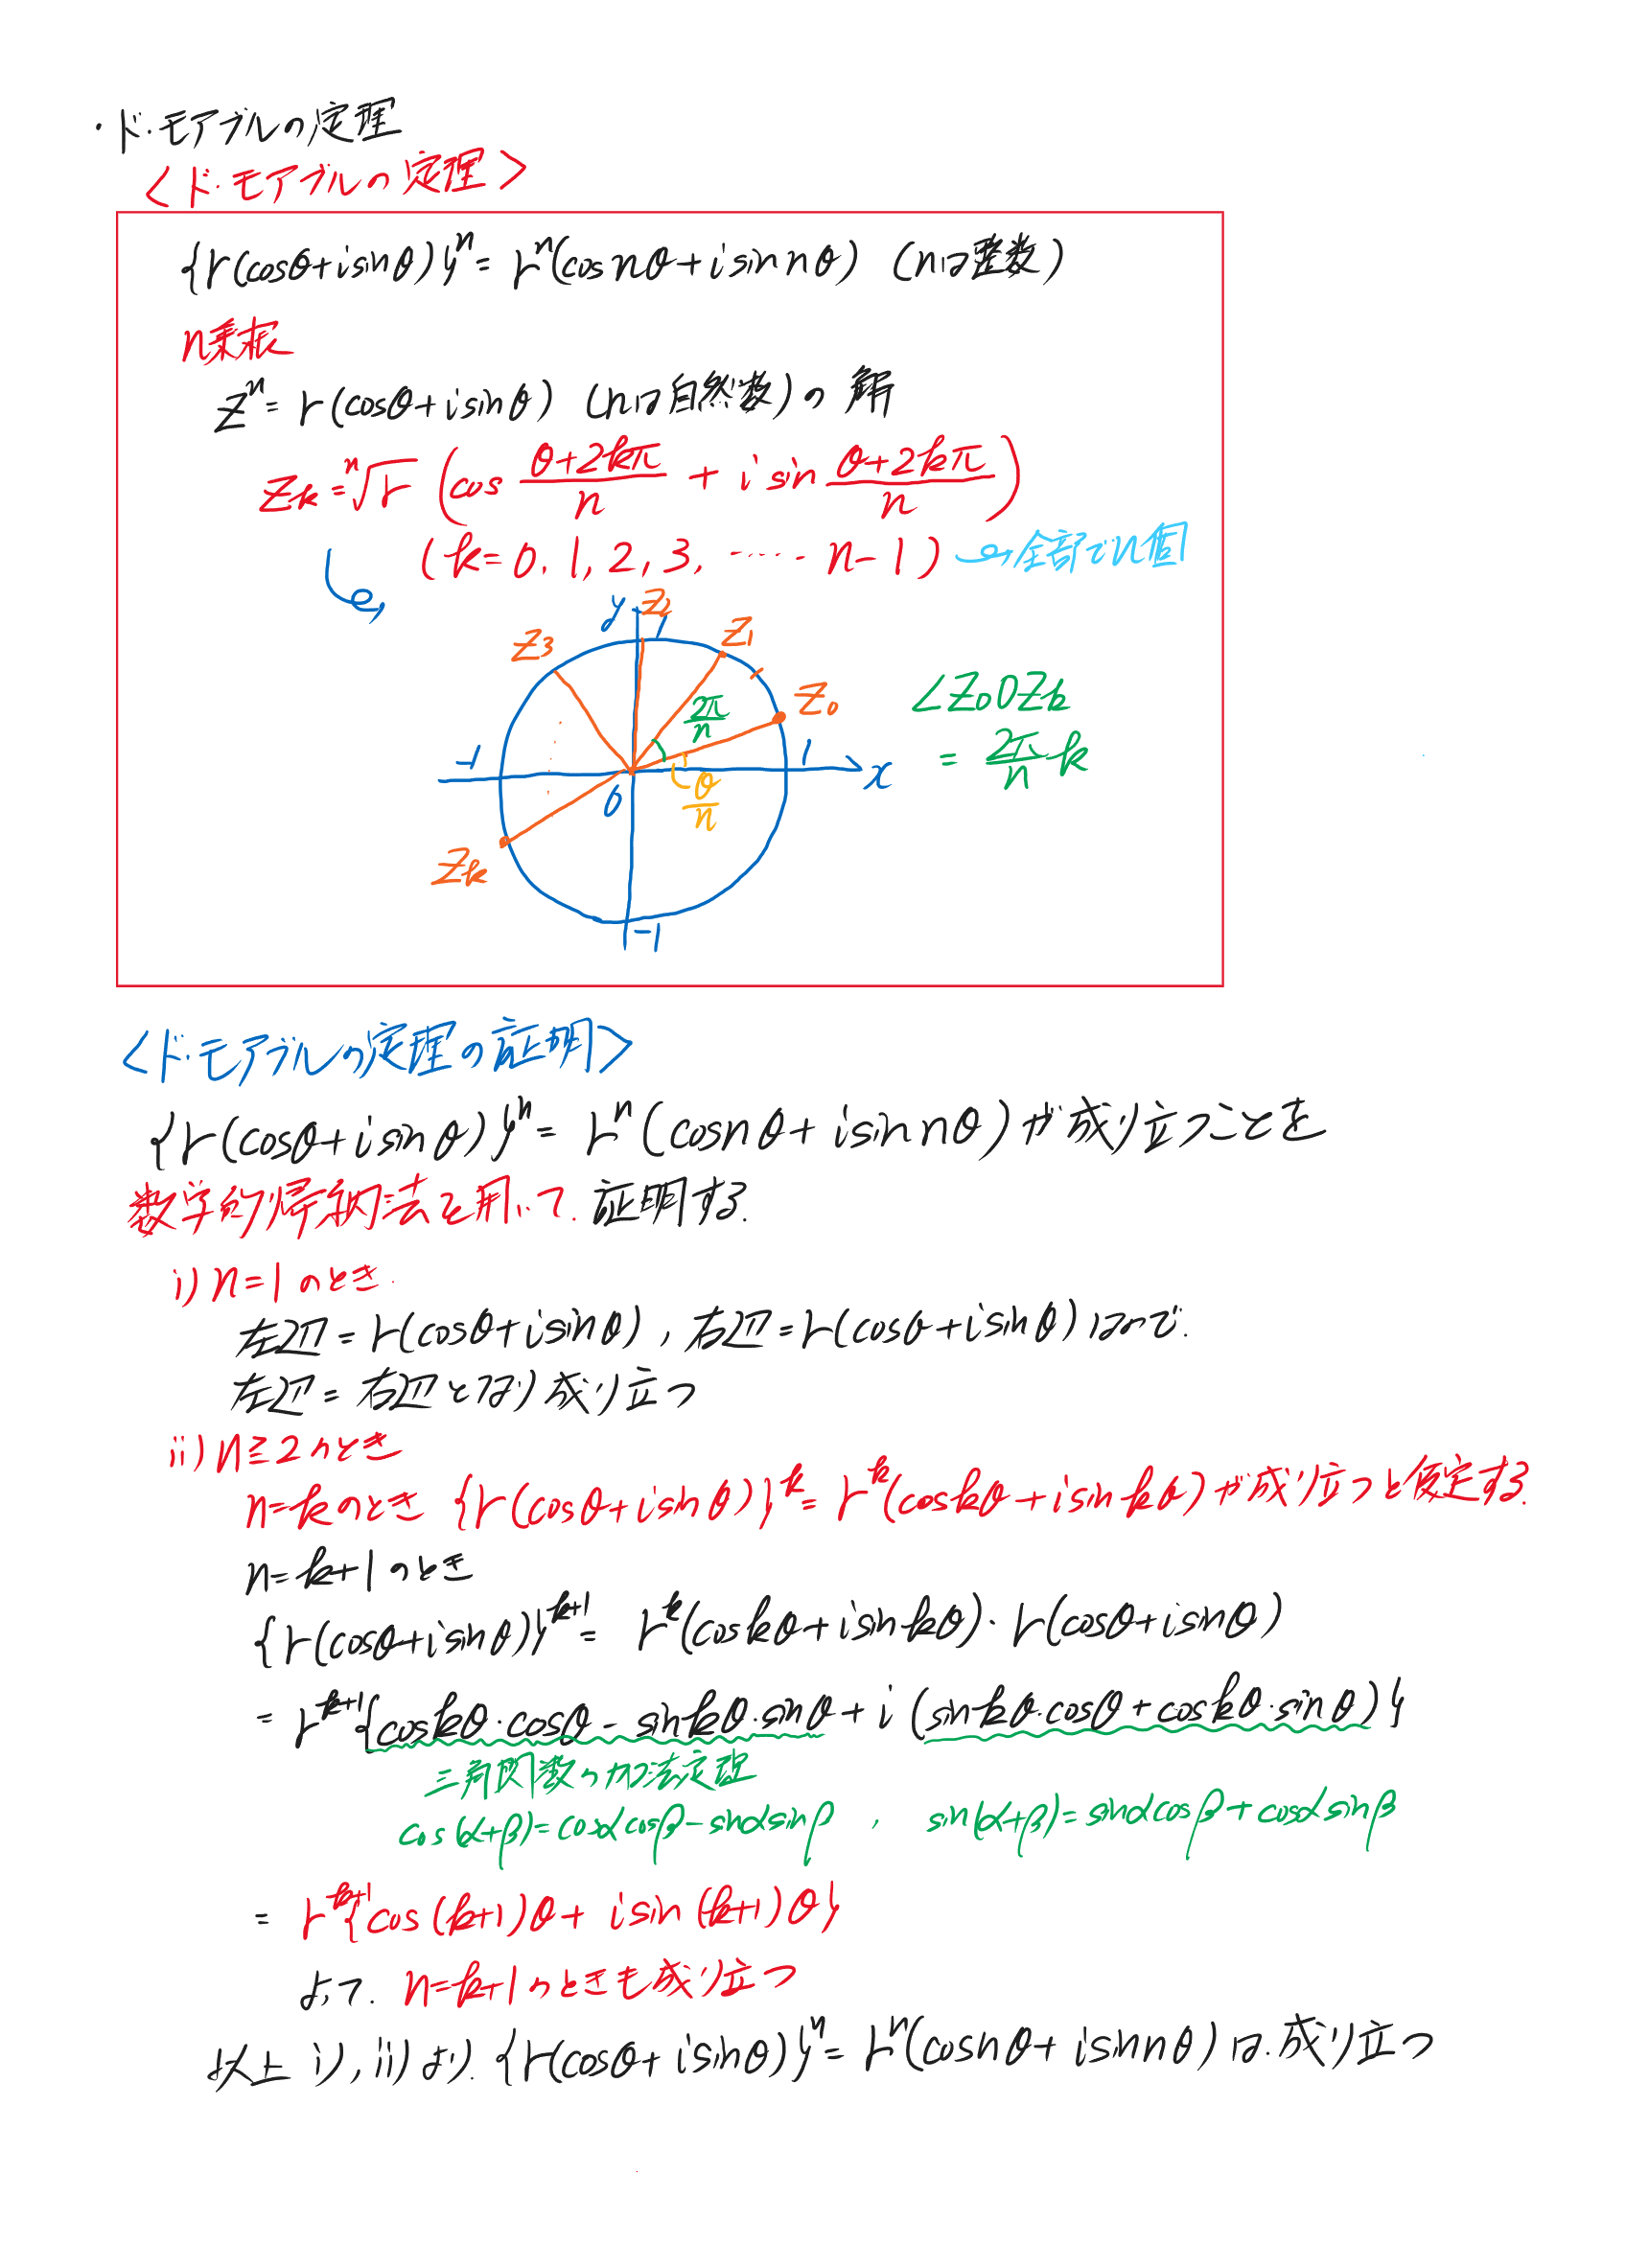 ・ド・モアブルの定理
<ド・モアブルの定理>
{r(cosθ+isinθ)}^n = r^n(cosnθ+isinnθ) (nは整数)
n乗根
z^n = r(cosθ+isinθ) (nは自然数)の解
z_k = ⁿ√r (cos (θ+2kπ)/n + i sin (θ+2kπ)/n)
(k=0, 1, 2, 3, ‥‥‥ n-1) → 全部でn個
y 1 z_2
z_3 z_1
z_0
2π/n
∠z_0Oz_k
= 2π/n k
-1 1 x
O θ/n
z_k
-1
<ド・モアブルの定理の証明>
{r(cosθ+isinθ)}^n = r^n(cosnθ+isinnθ)が成り立つことを
数学的帰納法を用いて、証明する.
i) n=1のとき.
左辺=r(cosθ+isinθ), 右辺=r(cosθ+isinθ)なので.
左辺=右辺となり成り立つ
ii) n≧2のとき
n=kのとき {r(cosθ+isinθ)}^k = r^k(coskθ+isinkθ)が成り立つと仮定する.
n=k+1のとき
{r(cosθ+isinθ)}^{k+1} = r^k(coskθ+isinkθ)・r(cosθ+isinθ)
= r^{k+1}{coskθ・cosθ-sinkθ・sinθ+i(sinkθ・cosθ+coskθ・sinθ)}
三角関数の加法定理
cos(α+β)=cosαcosβ-sinαsinβ , sin(α+β)=sinαcosβ+cosαsinβ
= r^{k+1}{cos(k+1)θ+isin(k+1)θ}
よって. n=k+1のときも成り立つ
以上 i), ii)より. {r(cosθ+isinθ)}^n = r^n(cosnθ+isinnθ)は. 成り立つ